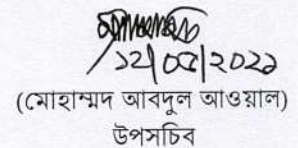 ১২/০৫/২০২১
(মোহাম্মদ আবদুল আওয়াল)
উপসচিব